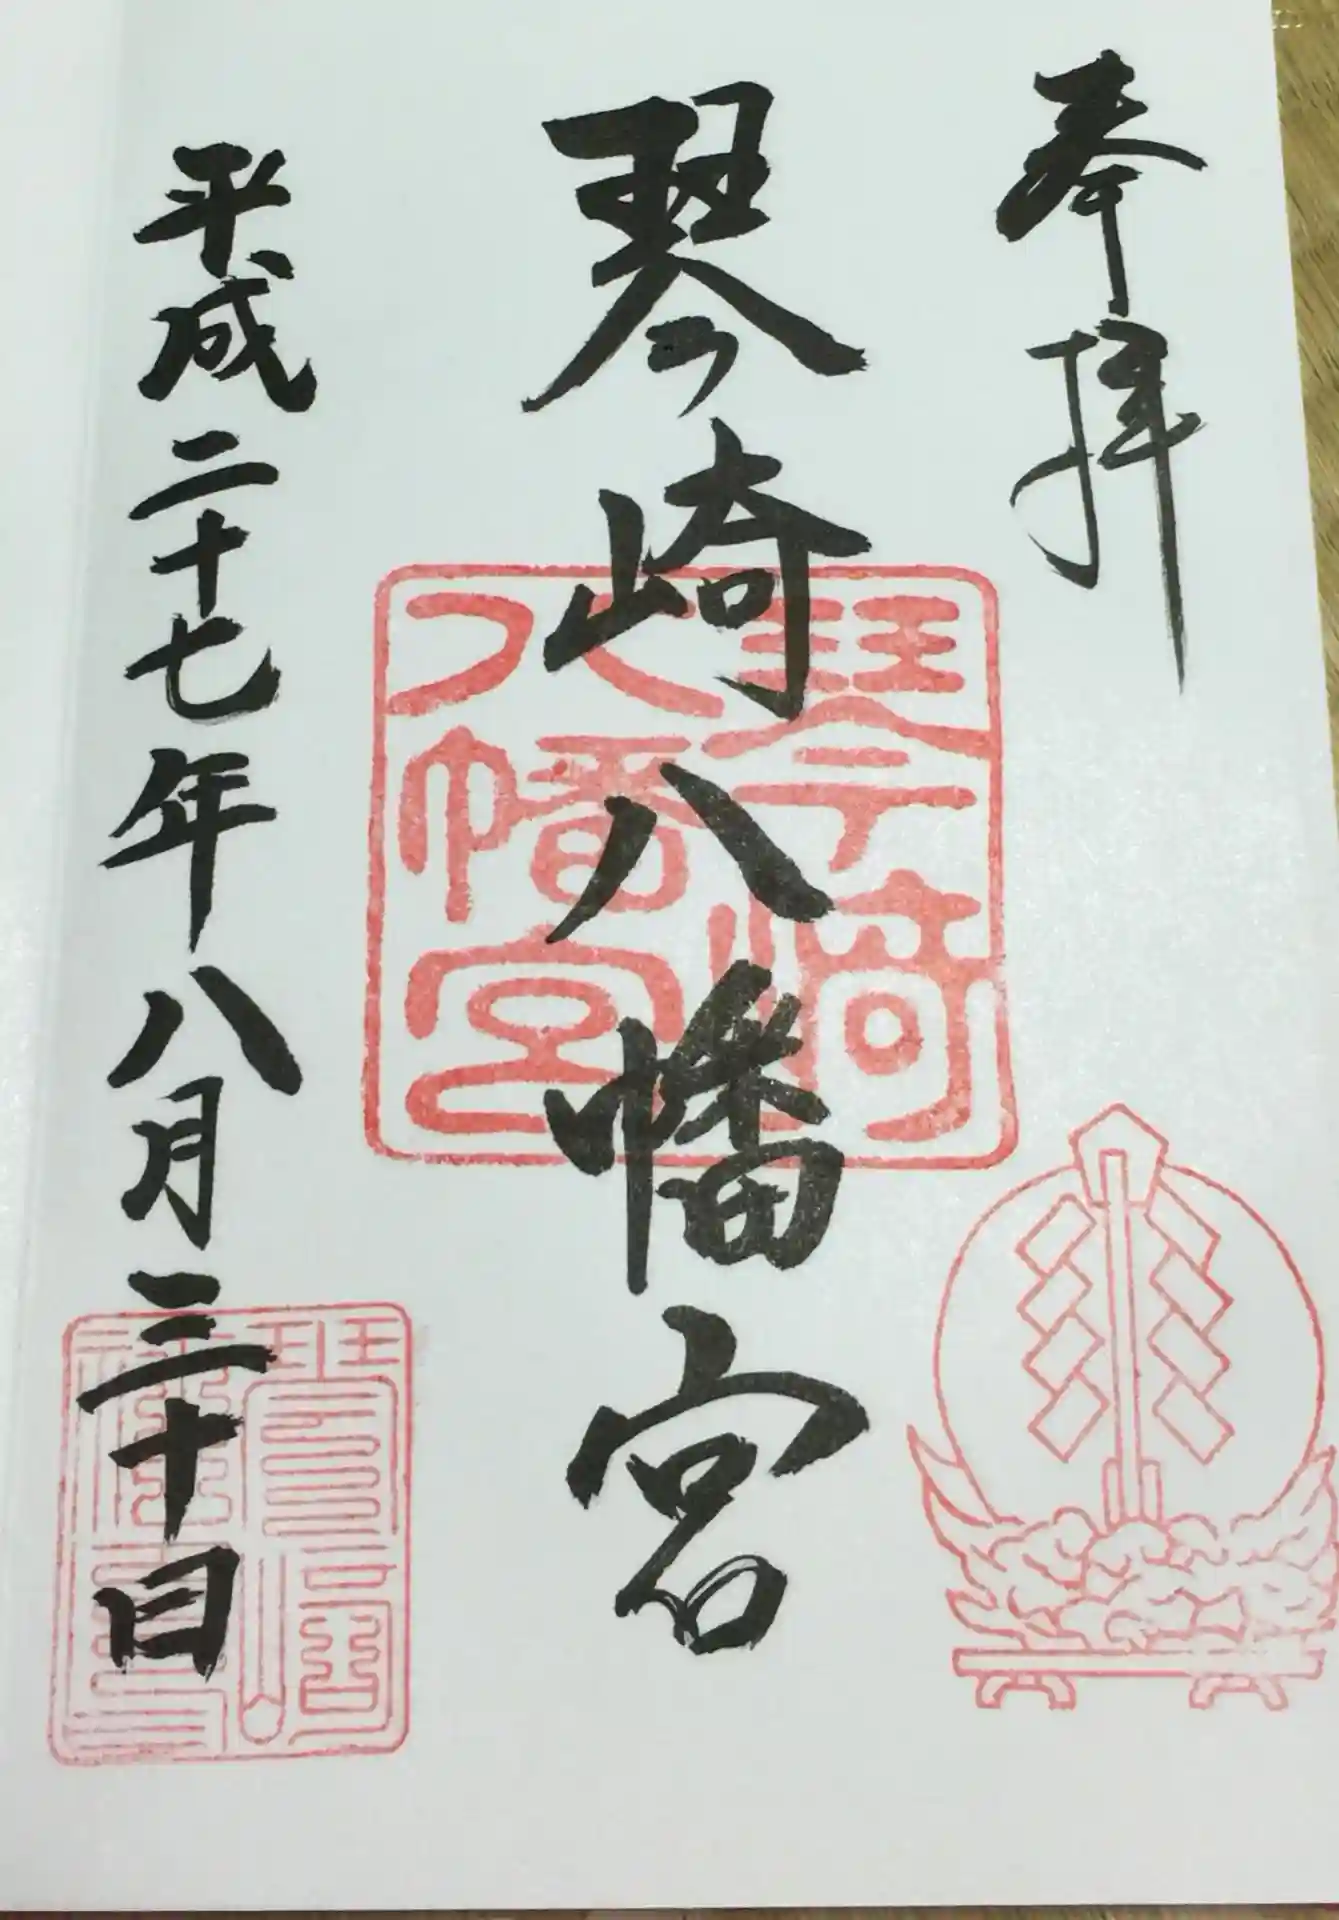 奉拝
琴崎八幡宮
琴崎
八幡宮
平成二十七年八月三十日